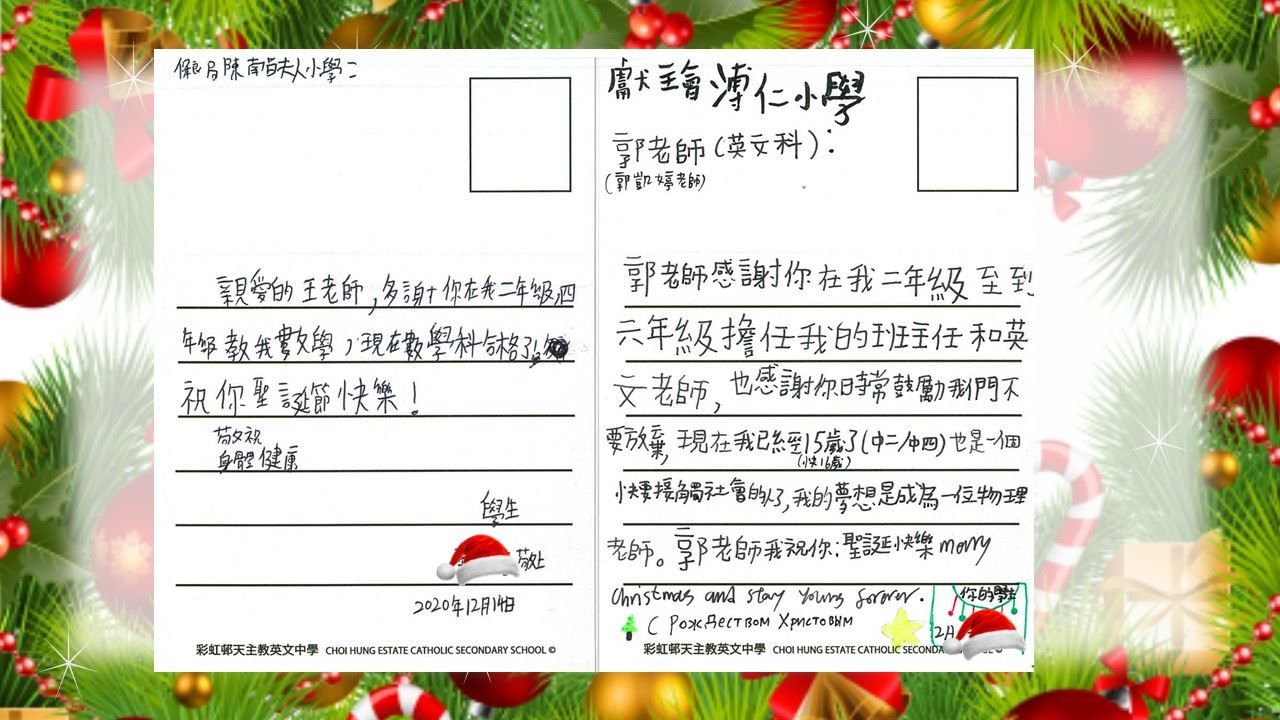 保局陳南昌夫人小學：
親愛的王老師,多謝你在我二年級,四
年級教我數學，現在數學科合格了。
祝你聖誕節快樂！
敬祝
身體健康
學生
敬上
2020年12月14日
彩虹邨天主教英文中學 CHOI HUNG ESTATE CATHOLIC SECONDARY SCHOOL ©
獻主會溥仁小學
郭老師(英文科)：
(郭凱婷老師)
郭老師感謝你在我二年級至到
六年級擔任我的班主任和英
文老師，也感謝你時常鼓勵我們不
要放棄，現在我已經15歲了(中二/中四)也是一個
(快16歲)
快要接觸社會的人了,我的夢想是成為一位物理
老師。郭老師我祝你:聖誕快樂merry
Christmas and stay young forever.
你的學生
С Рождеством Христовым
12月
彩虹邨天主教英文中學 CHOI HUNG ESTATE CATHOLIC SECONDA